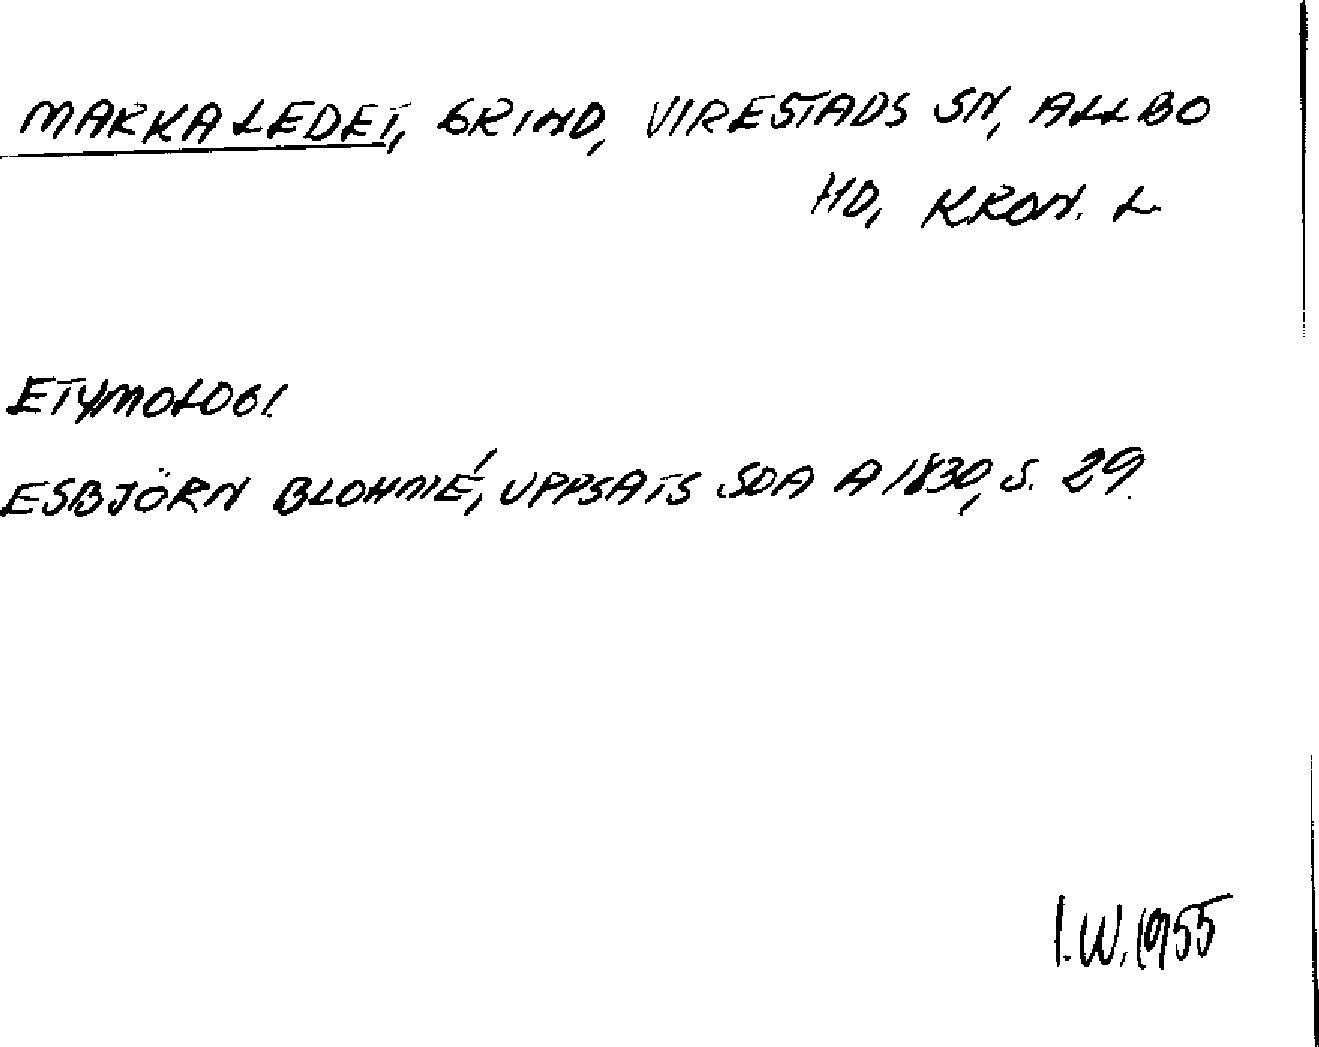 MARKALEDET, GRIND, VIRESTADS SN, ALLBO
HD, KRON. L
ETYMOLOGI.
ESBJÖRN BLOHMÉ, UPPSATS SOA A 1830, S. 29.
I.W. 1955